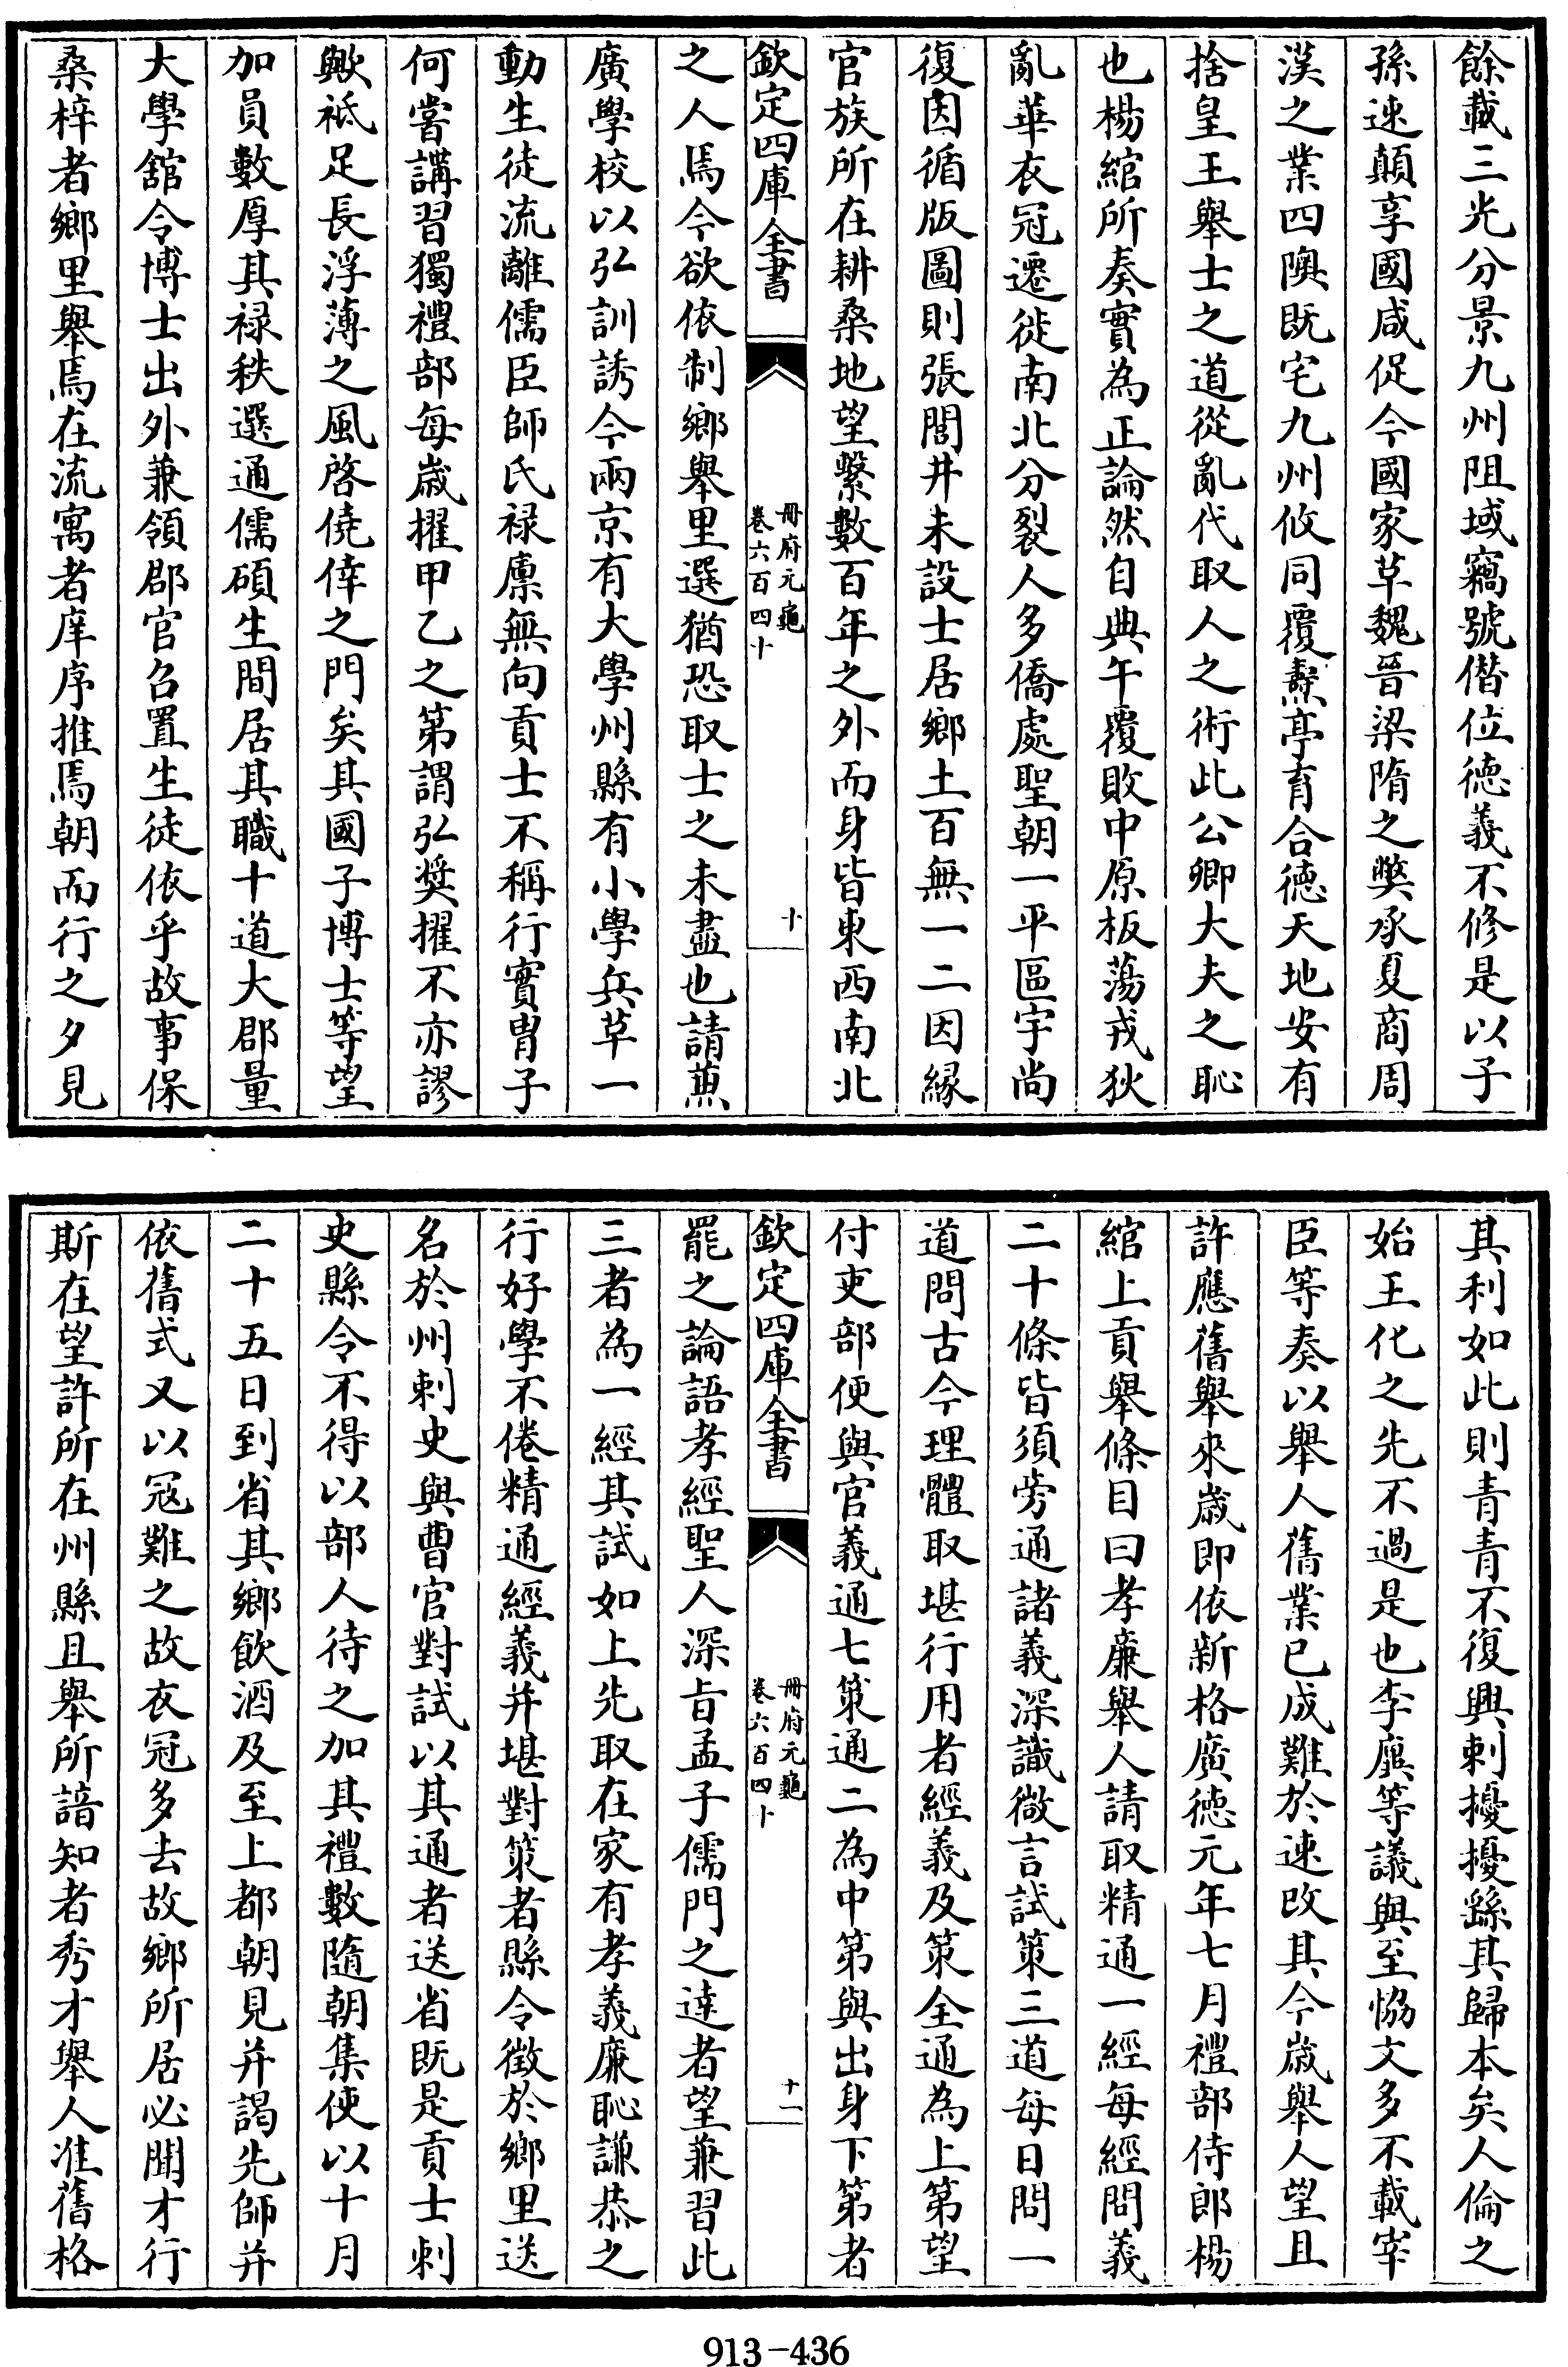 餘載三光分景九州阻域竊號僣位徳義不修是以子
孫速顛享國咸促今國家革魏晉梁隋之獘承夏商周
漢之業四隩既宅九州攸同覆燾亭育合徳天地安有
捨皇王舉士之道從亂代取人之術此公卿大夫之恥
也楊綰所奏實為正論然自典午覆敗中原板蕩戎狄
亂華衣冠遷徙南北分裂人多僑處聖朝一平區宇尚
復因循版圖則張閭井未設士居鄉土百無一二因縁
官族所在耕桑地望繫數百年之外而身皆東西南北
欽定四庫全書
冊府元龜
卷六百四十
十
之人焉今欲依制鄉舉里選猶恐取士之未盡也請蒹
廣學校以弘訓誘今兩京有大學州縣有小學兵革一
動生徒流離儒臣師氏禄廪無向貢士不稱行實胄子
何嘗講習獨禮部每嵗擢甲乙之第謂弘奬擢不亦謬
歟祗足長浮薄之風啓僥倖之門矣其國子博士等望
加員數厚其禄秩選通儒碩生間居其職十道大郡量
大學舘令博士出外兼領郡官召置生徒依乎故事保
桑梓者鄉里舉焉在流寓者庠序推焉朝而行之夕見
其利如此則青青不復興刺擾擾繇其歸本矣人倫之
始王化之先不過是也李廙等議與至恊文多不載宰
臣等奏以舉人舊業已成難於速改其今嵗舉人望且
許應舊舉來嵗即依新格廣徳元年七月禮部侍郎楊
綰上貢舉條目曰孝廉舉人請取精通一經每經問義
二十條皆須旁通諸義深識微言試策三道每日問一
道問古今理體取堪行用者經義及策全通為上第望
付吏部便與官義通七策通二為中第與出身下第者
欽定四庫全書
冊府元龜
卷六百四十
十一
罷之論語孝經聖人深㫖孟子儒門之達者望兼習此
三者為一經其試如上先取在家有孝義廉恥謙恭之
行好學不倦精通經義并堪對策者縣令徴於鄉里送
名於州刺史與曹官對試以其通者送省既是貢士刺
史縣令不得以部人待之加其禮數隨朝集使以十月
二十五日到省其鄉飲酒及至上都朝見并謁先師并
依舊式又以冦難之故衣冠多去故鄉所居必聞才行
斯在望許所在州縣且舉所諳知者秀才舉人准舊格
913-436